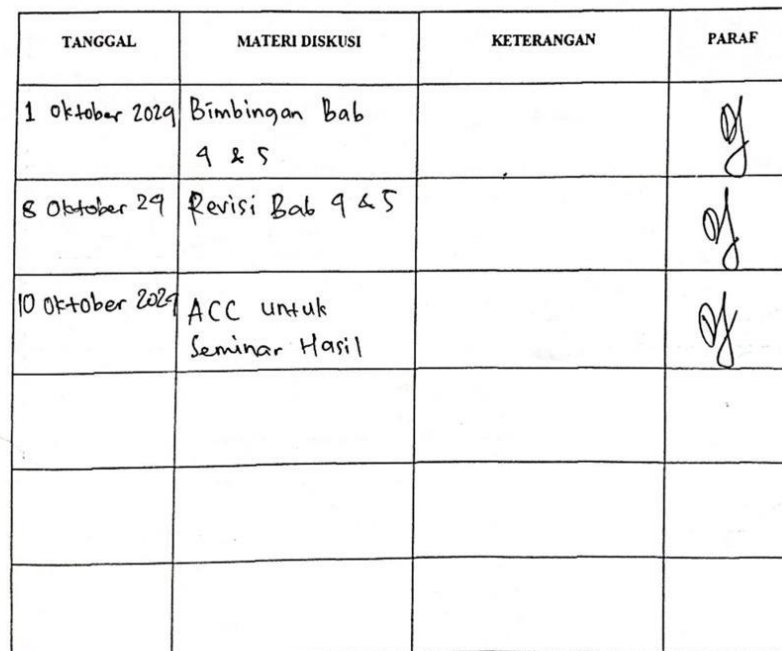 TANGGAL MATERI DISKUSI KETERANGAN PARAF
1 Oktober 2024 Bimbingan Bab
4 & 5
8 Oktober 24 Revisi Bab 4 & 5
10 Oktober 2024 ACC untuk
Seminar Hasil